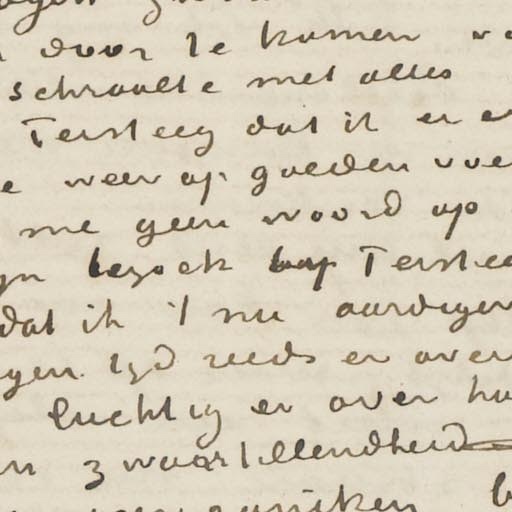 door te komen
schraalte met alles
Tersteeg dat ik er
e weer op goeden voe
me geen woord op
yn bezoek by Terstee
dat ik 't nu aardiger
gen tyd reeds er over
luchtig er over h
n zwaartillendheid